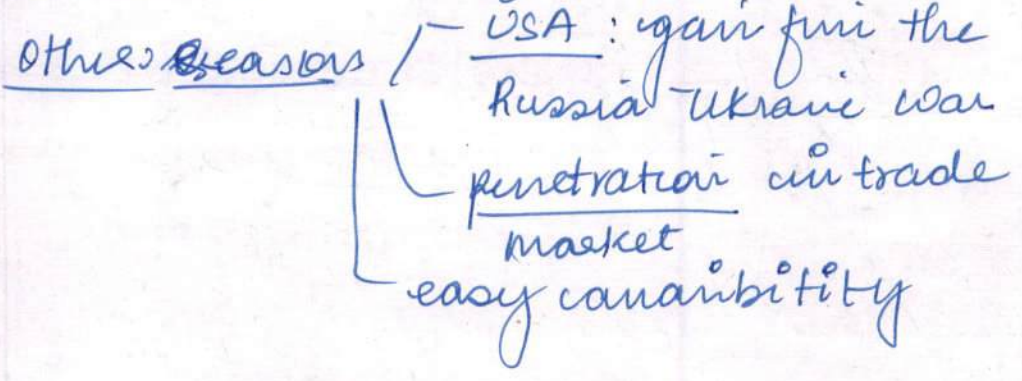 Other reasons
USA : gain from the
Russia-Ukraine war
penetration in trade
market
easy